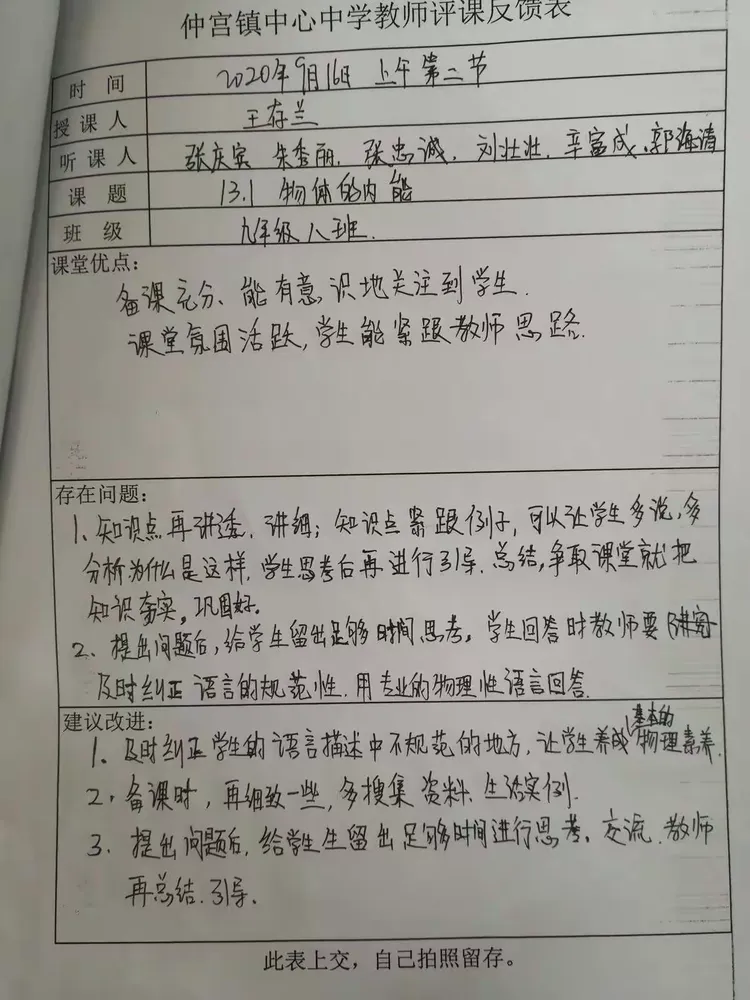 仲宫镇中心中学教师评课反馈表
时间 2020年9月16日 上午第二节
授课人 王存兰
听课人 张庆宾 朱秀丽、张忠诚、刘壮壮、辛富成、郭海清
课题 13.1 物体的内能
班级 九年级八班.
课堂优点:
备课充分、能有意识地关注到学生.
课堂氛围活跃,学生能紧跟教师思路.
存在问题:
1、知识点再讲透、讲细;知识点紧跟例子,可以让学生多说,多
分析为什么是这样,学生思考后再进行引导、总结,争取课堂就把
知识夯实,巩固好。
2、提出问题后,给学生留出足够时间思考,学生回答时教师要
及时纠正语言的规范性.用专业的物理性语言回答.
建议改进:
1、及时纠正学生的语言描述中不规范的地方,让学生养成基本的物理素养.
2、备课时,再细致一些,多搜集资料、生活实例.
3、提出问题后,给学生生留出足够时间进行思考、交流.教师
再总结、引导。
此表上交,自己拍照留存。